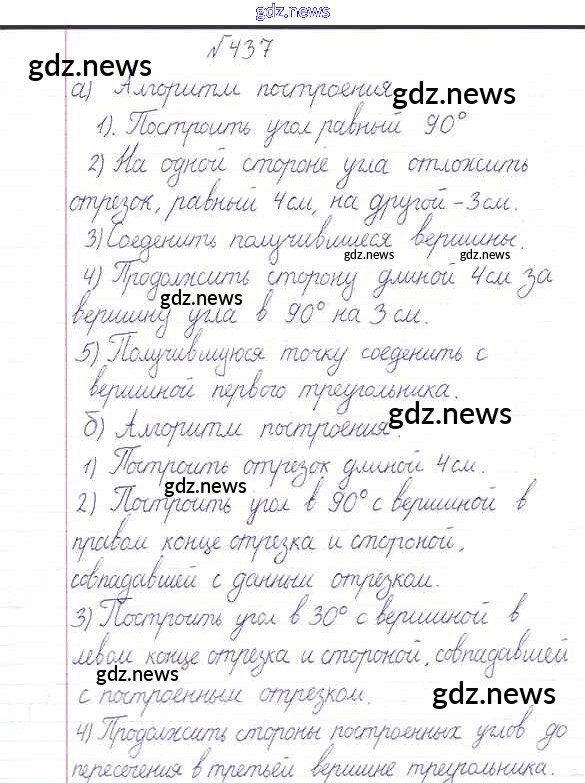 gdz.news
№437
gdz.news
а) Алгоритм построения
gdz.news
1). Построить угол равный 90°
2) На одной стороне угла отложить
отрезок, равный 4см, на другой -3см.
3) Соеденить получившиеся вершины.
gdz.news gdz.news
4) Продолжить сторону длиной 4см за
gdz.news
вершину угла в 90° на 3см.
5) Получившуюся точку соеденить с
вершиной первого треугольника.
gdz.news
б) Алгоритм построения:
1) Построить отрезок длиной 4см.
gdz.news
2) Построить угол в 90° с вершиной в
правом конце отрезка и стороной,
совпадавшей с данным отрезком.
3) Построить угол в 30° с вершиной в
левом конце отрезка и стороной, совпадавшей
с построенным отрезком.
gdz.news
4) Продолжить стороны построенных углов до
gdz.news
пересечения в третьей вершине треугольника.